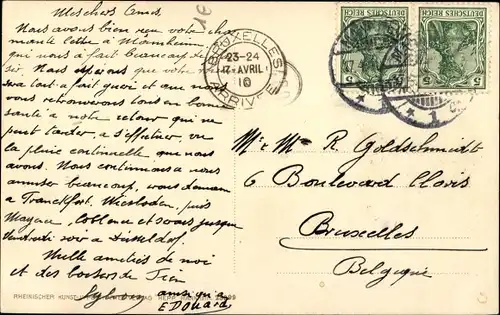 Mes chers Amis
Nous avons bien reçu votre char
mante lettre à Mannheim
qui nous a fait beaucoup de
Nous
tout a fait guéri et que nous
vous retrouverons tous en bonne
santé a notre retour qui ne
peut tarder, a s'effectuer, vu
la pluie continuelle que nous
avons. Nous continuons a nous
amuser beaucoup, vous demain
a Franckfort, Wiesbaden, puis
Mayence, Coblence et jusque
Vendredi soir a Dusseldorf.
Mille amitiés de moi
et des baisers de
ainsi qu'a
EDouard
1€
BRUXELLES
23-24
17 AVRIL
10
ARRIVÉE
DEUTSCHES REICH
5
DEUTSCHES REICH
5
* 1
Mr & Mme R. Goldschmidt
6 Boulevard Clovis
Bruxelles
Belgique
RHEINISCHER KUNST